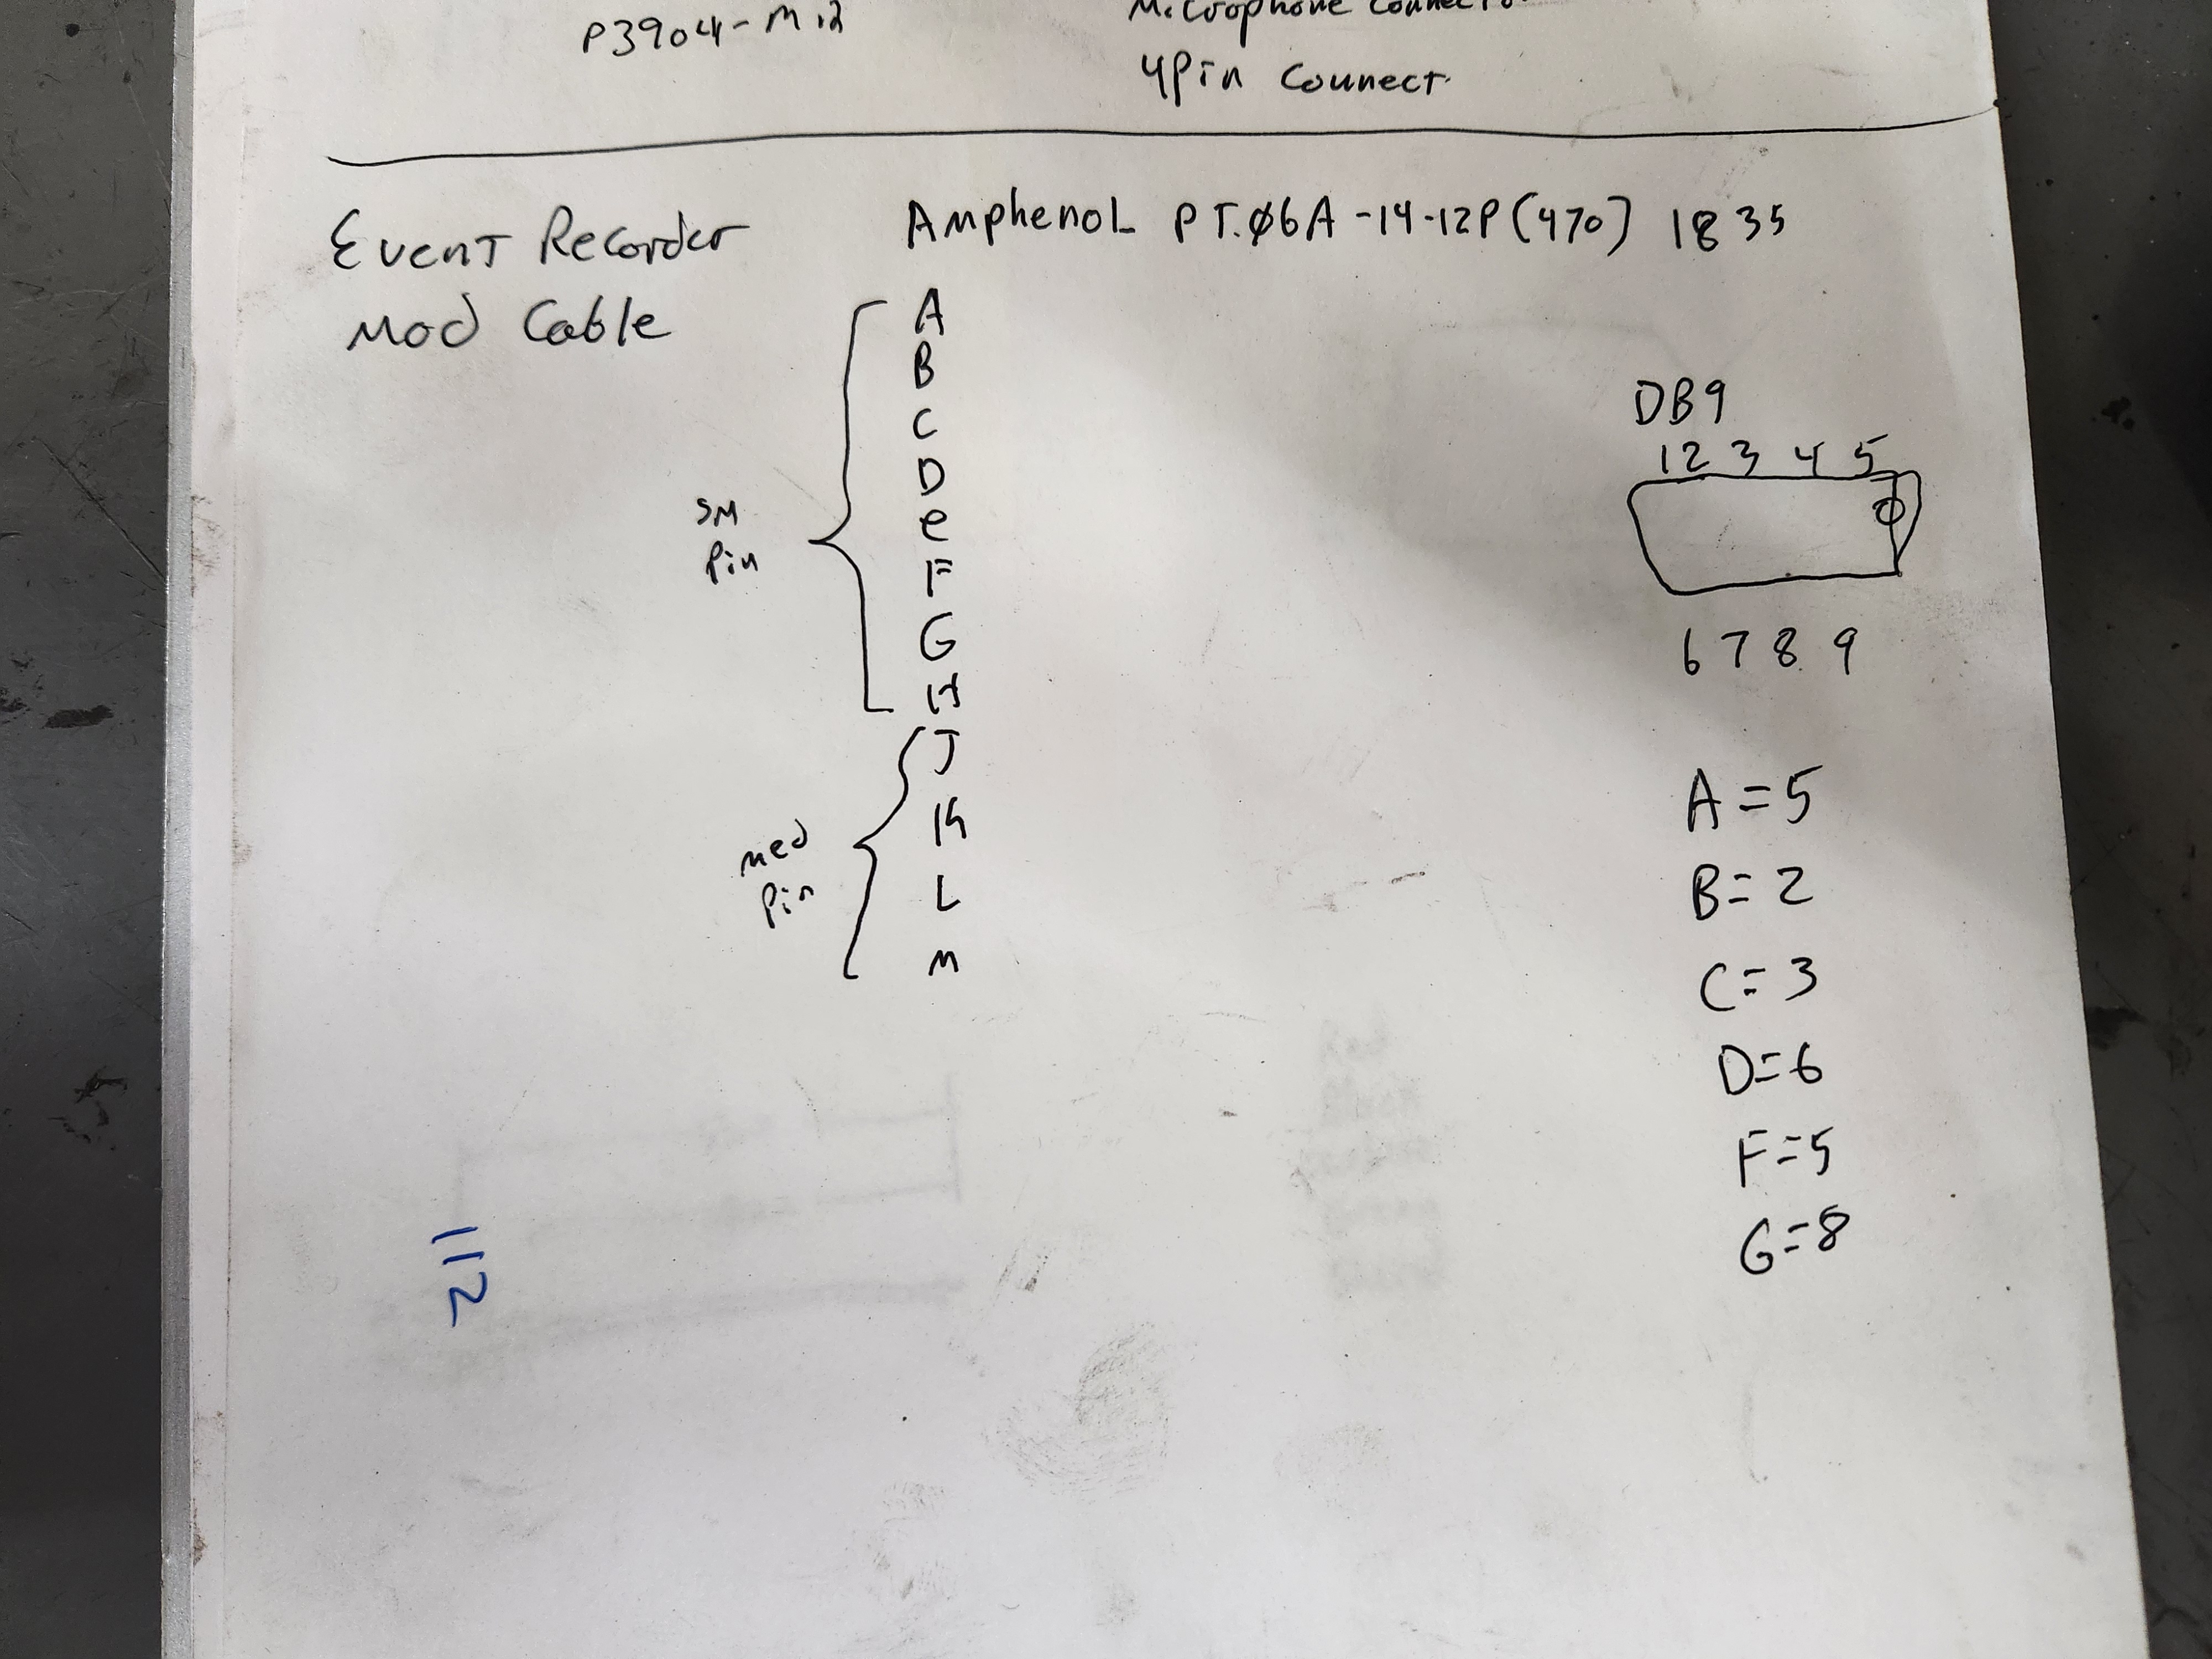 P3904-M
Microphone
4Pin Connect
Event Recorder
Mod Cable
Amphenol PT.Ø6A-14-12P(470) 1835
A
B
C
D
e
F
G
H
J
K
L
M
SM
Pin
Med
Pin
DB9
1 2 3 4 5
6 7 8 9
A=5
B=2
C=3
D=6
F=5
G=8
112